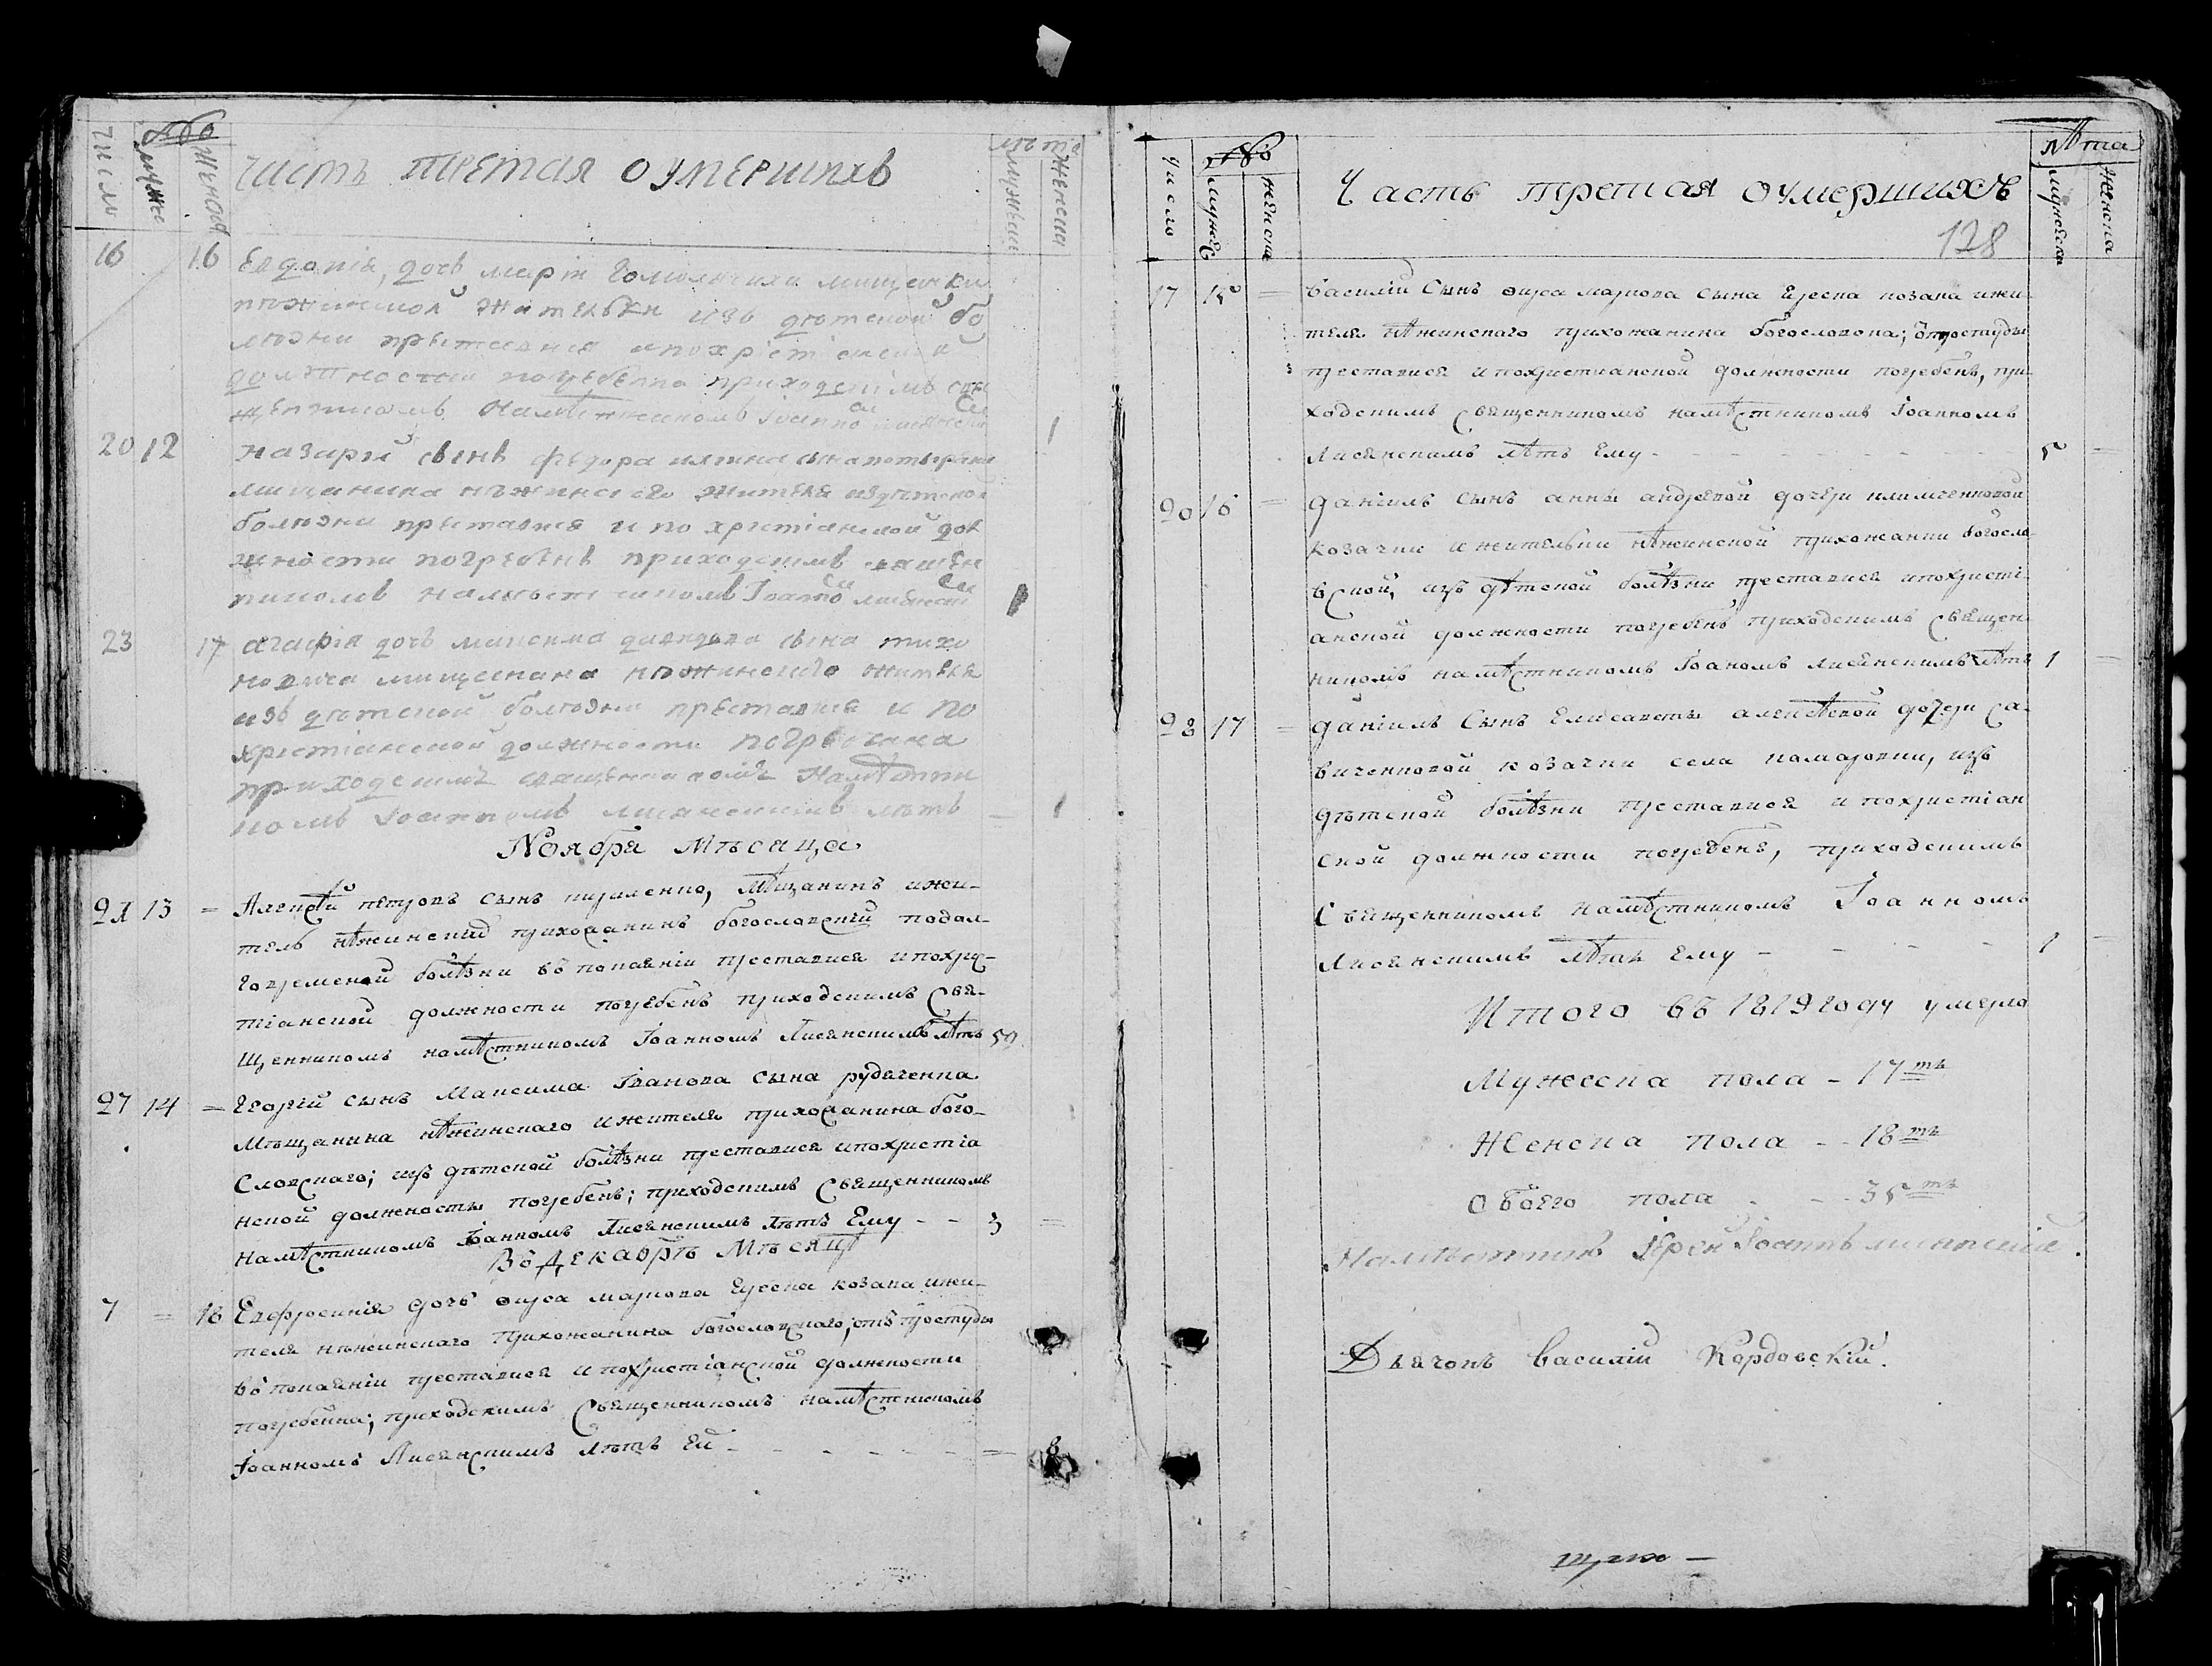 Число
№
мужес
женска
часть третая о умершихъ
лѣта
мужеска
женска
16 16 Евдокіа, дочь маріи мищанки
нѣжинской жителки изъ дѣтской бо
лѣзни преставися и похрістіанской
должности погребенна приходскімъ свя
щенникомъ Намѣстникомъ Іоанномъ Лисянскимъ 1
20 12 назарій сынъ федора сына
мищанина нѣжинского жителя издѣтской
болѣзни преставися и по христіанской дол
жности погребенъ приходскимъ священ
никомъ намѣстникомъ Іоанномъ лисянским
23 17 агафія дочь максима давидова сына тихо
новича мищенина нѣжинского жителя
изъ дѣтской болѣзни преставися и по
христіанской должности погребенна
приходскимъ священникомъ Намѣстни
комъ Іоанномъ лисянскимъ лѣтъ – 1
Ноября Мѣсяца
21 13 = Алексѣй петровъ сынъ, мѣщанинъ ижи-
тель нѣжинскій прихожанинъ богословскій подол-
говременой болѣзни въ покаяніи преставися ипохрис-
тіанской должности погребенъ приходскимъ Свя-
щенникомъ намѣстникомъ Іоанномъ Лисянскимъ лѣтъ 50
27 14 = Георгій сынъ Максима Іванова сына рудченка
Мѣщанина нѣжинскаго ижителя прихожанина бого-
Словскаго; изъ дѣтской болѣзни преставися ипохристіа
нской должносты погребенъ; приходскимъ Священникомъ
намѣстникомъ Іоанномъ Лисянскимъ лѣтъ Ему - - 3 =
Въ Декабрѣ Мѣсяцѣ
7 = 18 Евфросинія дочь Фирса маркова козака ижи-
теля нѣжинскаго прихожанина богословскаго; отъ простуды
въ покаяніи преставися и похристіанской должности
погребенна; приходскимъ Священникомъ намѣстникомъ
Іоанномъ Лисянскимъ лѣтъ Ей - - - - - = 8
Число
№
мужес
женска
Часть третая о умершихъ
лѣта
мужеска
женска
128
17 15 = Василій Сынъ Фирса маркова сына козака ижи-
теля нѣжинскаго прихожанина богословского; отпростуды
преставися ипохристианской должности погребенъ, при-
ходскимъ Священникомъ намѣстникомъ Іоанномъ
Лисянскимъ лѣтъ Ему - - - - - 5 =
20 16 = даніилъ сынъ анны андреевой дочери климченковой
козачки ижителки нѣжинской прихожанки богосло-
вской, изъ дѣтской болѣзни преставися ипохристі-
анской должности погребенъ приходскимъ Священ-
никомъ намѣстникомъ Іоаномъ лисянскимъ лѣтъ 1 =
23 17 = даніилъ Сынъ Елисаветы алексѣевой дочери Са-
виченковой козачки села, изъ
дѣтской болѣзни преставися и похристіан
ской должности погребенъ, приходскимъ
Священникомъ намѣстникомъ Іоанномъ
Лисянскимъ лѣтъ Ему - - - - 1 =
Итого въ 1819 году умерло
Мужеска пола - 17ть
Женска пола - - 18ть
Обоего пола - - - 35ть
Намѣстникъ Іерей Іоаннъ лисянскій.
Дьячокъ Василій Кордовскій.